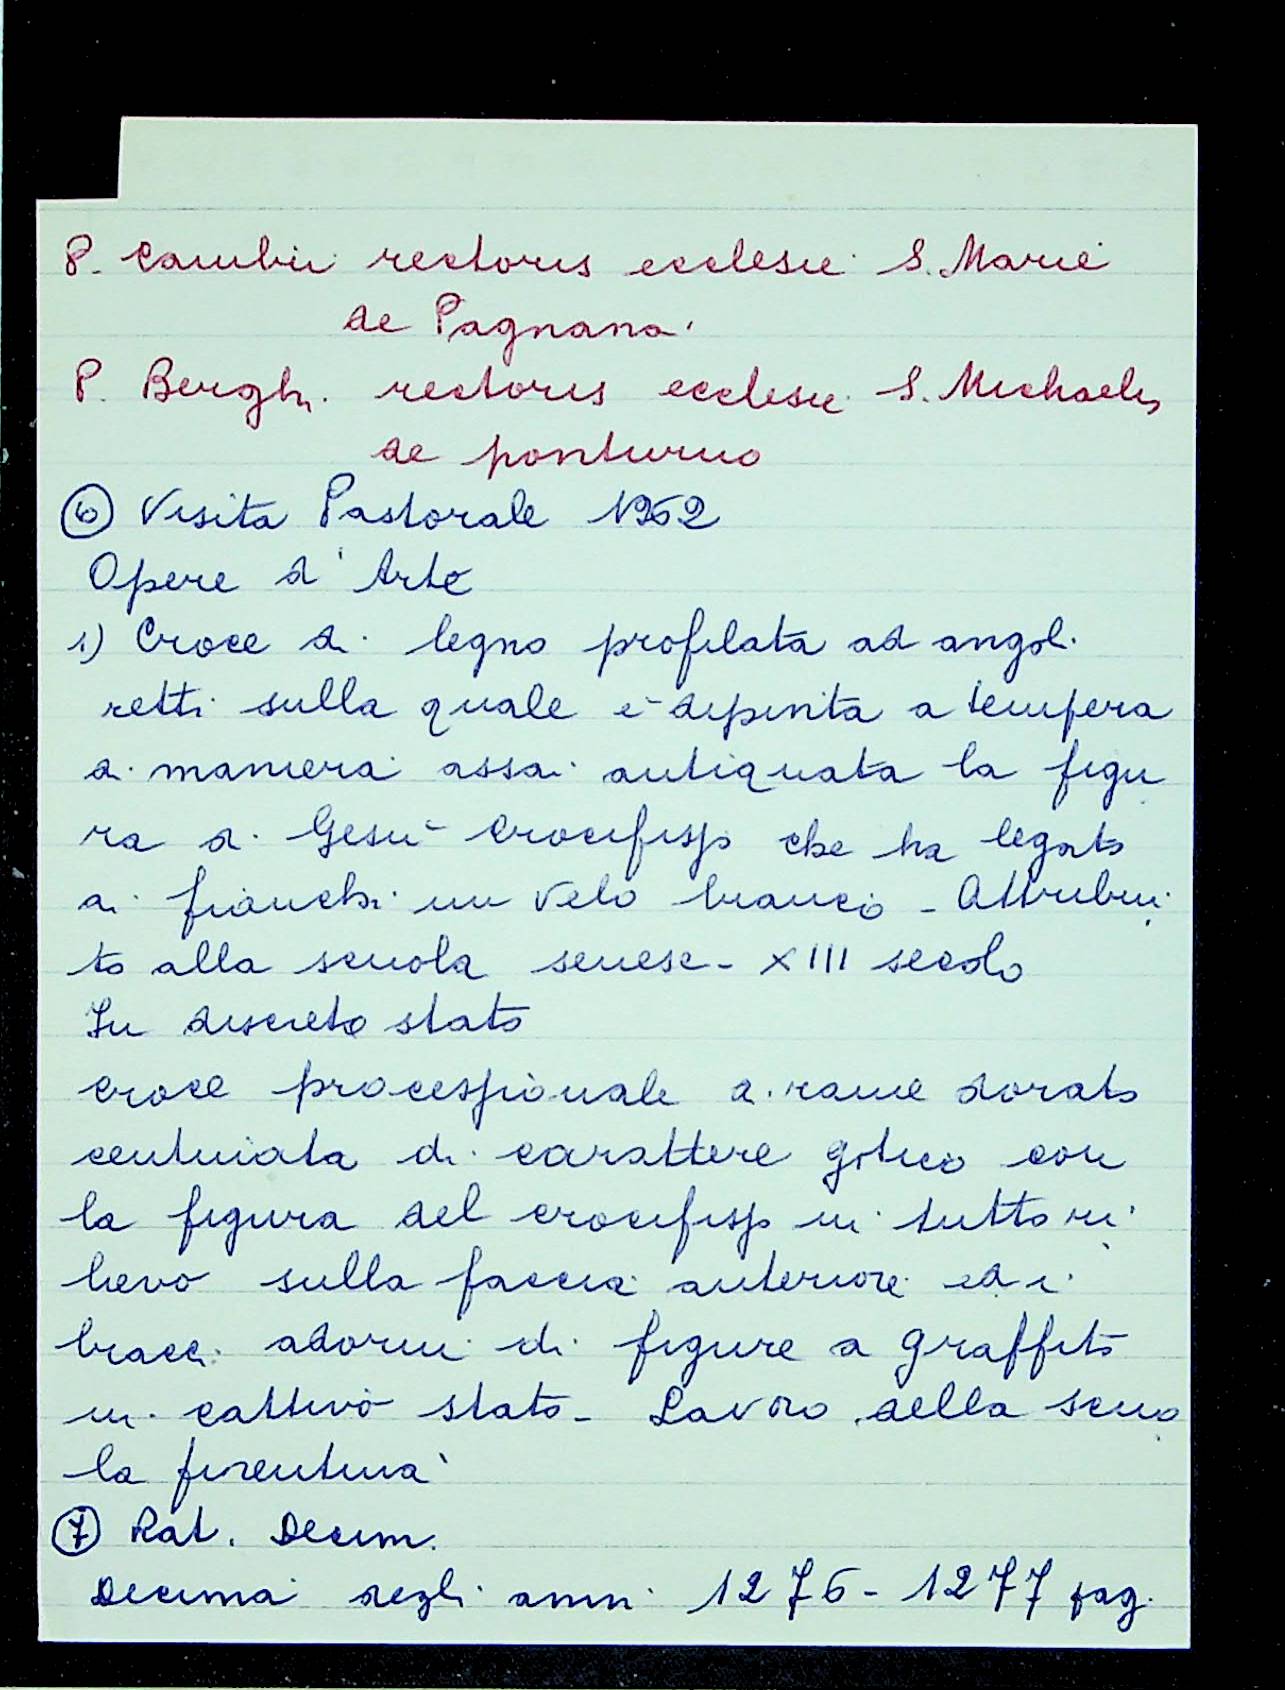 P. Cambii rectoris ecclesie S. Marie
de Pagnana.
P. Bergh. rectoris ecclesie S. Michaelis
de ponturno
⑥ Visita Pastorale 1962
Opere d'Arte
1) Croce di legno profilata ad angoli
retti sulla quale è dipinta a tempera
di maniera assai antiquata la figu
ra di Gesù Crocifisso che ha legato
ai fianchi un velo bianco - Attribui
to alla scuola senese - XIII secolo
In discreto stato
Croce processionale di rame dorato
centinata di carattere gotico con
la figura del crocifisso in tutto ri
lievo sulla faccia anteriore ed i
bracci adorni di figure a graffito
in cattivo stato - Lavoro della scuo
la fiorentina
⑦ Rat. Decim.
Decima degli anni 1276 - 1277 pag.